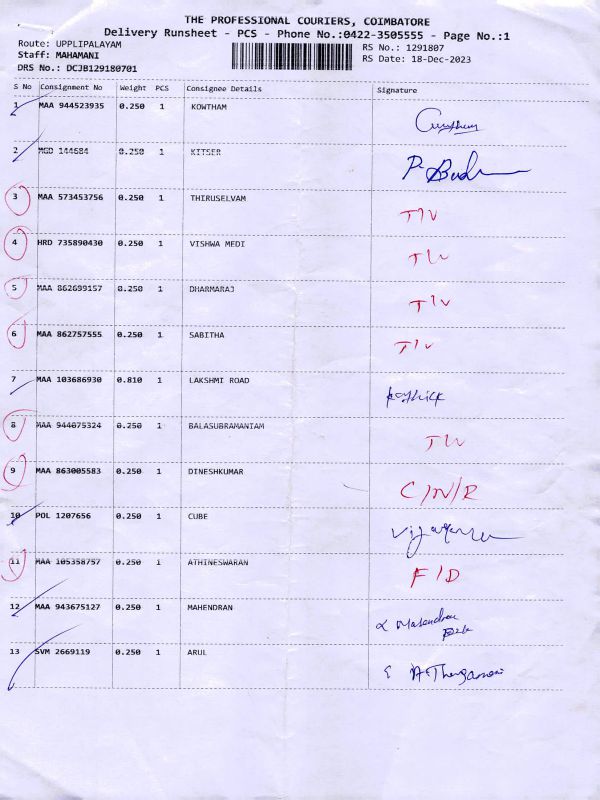 THE PROFESSIONAL COURIERS, COIMBATORE
Delivery Runsheet - PCS - Phone No.:0422-3505555 - Page No.:1
Route: UPPLIPALAYAM
RS No.: 1291807
Staff: MAHAMANI
RS Date: 18-Dec-2023
DRS No.: DCJB129180701
S No Consignment No Weight PCS Consignee Details Signature
1 MAA 944523935 0.250 1 KOWTHAM
2 MGD 144684 0.250 1 KITSER
3 MAA 573453756 0.250 1 THIRUSELVAM T/V
4 HRD 735890430 0.250 1 VISHWA MEDI
5 MAA 862699157 0.250 1 DHARMARAJ T/V
6 MAA 862757555 0.250 1 SABITHA T/V
7 MAA 103686930 0.810 1 LAKSHMI ROAD
8 MAA 944075324 0.250 1 BALASUBRAMANIAM
9 MAA 863005583 0.250 1 DINESHKUMAR C/N/R
10 POL 1207656 0.250 1 CUBE
11 MAA 105358757 0.250 1 ATHINESWARAN F/D
12 MAA 943675127 0.250 1 MAHENDRAN
13 SVM 2669119 0.250 1 ARUL